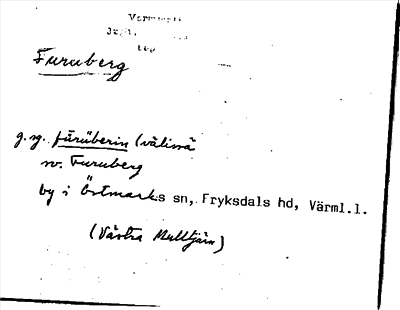 Furuberg
g. sg. fūrūberin (välissä
sv. Furuberg
by i Östmarks sn, Fryksdals hd, Värml.l.
(Västra Mulltjärn)